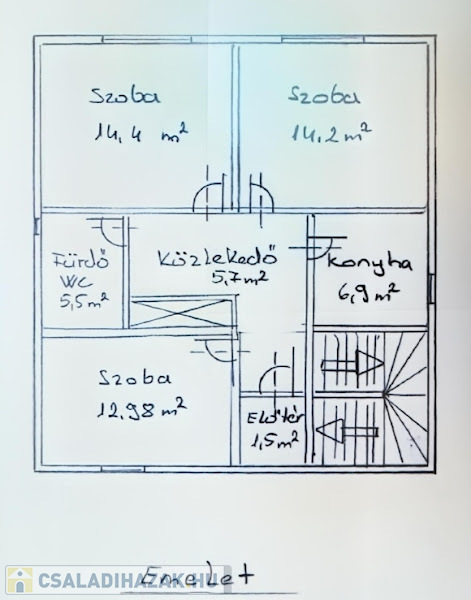 Szoba
14,4 m²
Szoba
14,2 m²
Fürdő
WC
5,5 m²
Közlekedő
5,7 m²
Konyha
6,9 m²
Szoba
12,98 m²
Előtér
1,5 m²
Emelet
CSALADIHAZAK.HU